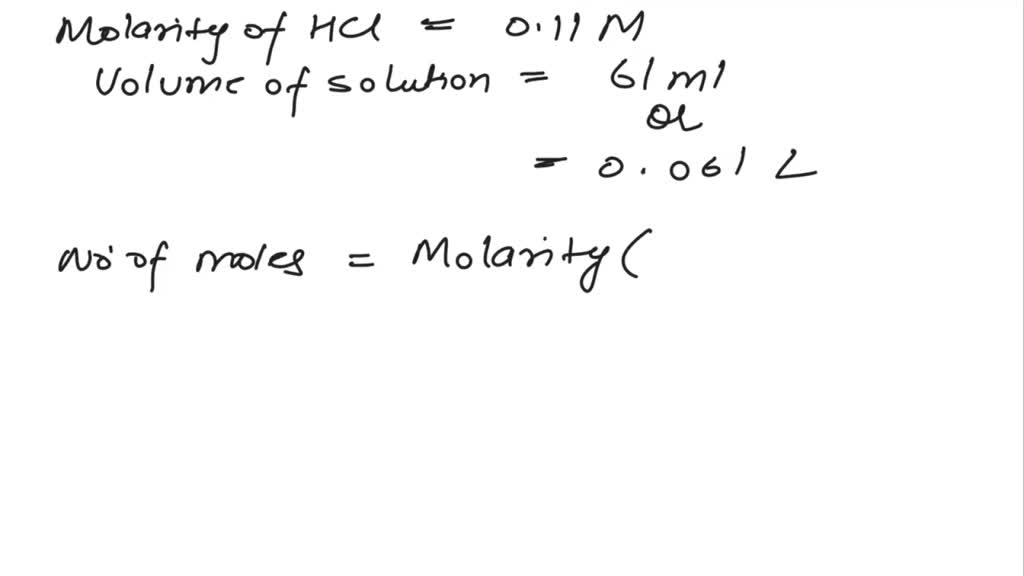 Molarity of HCl = 0.11 M
Volume of solution = 61 ml
or
= 0.061 L
No of moles = Molarity (